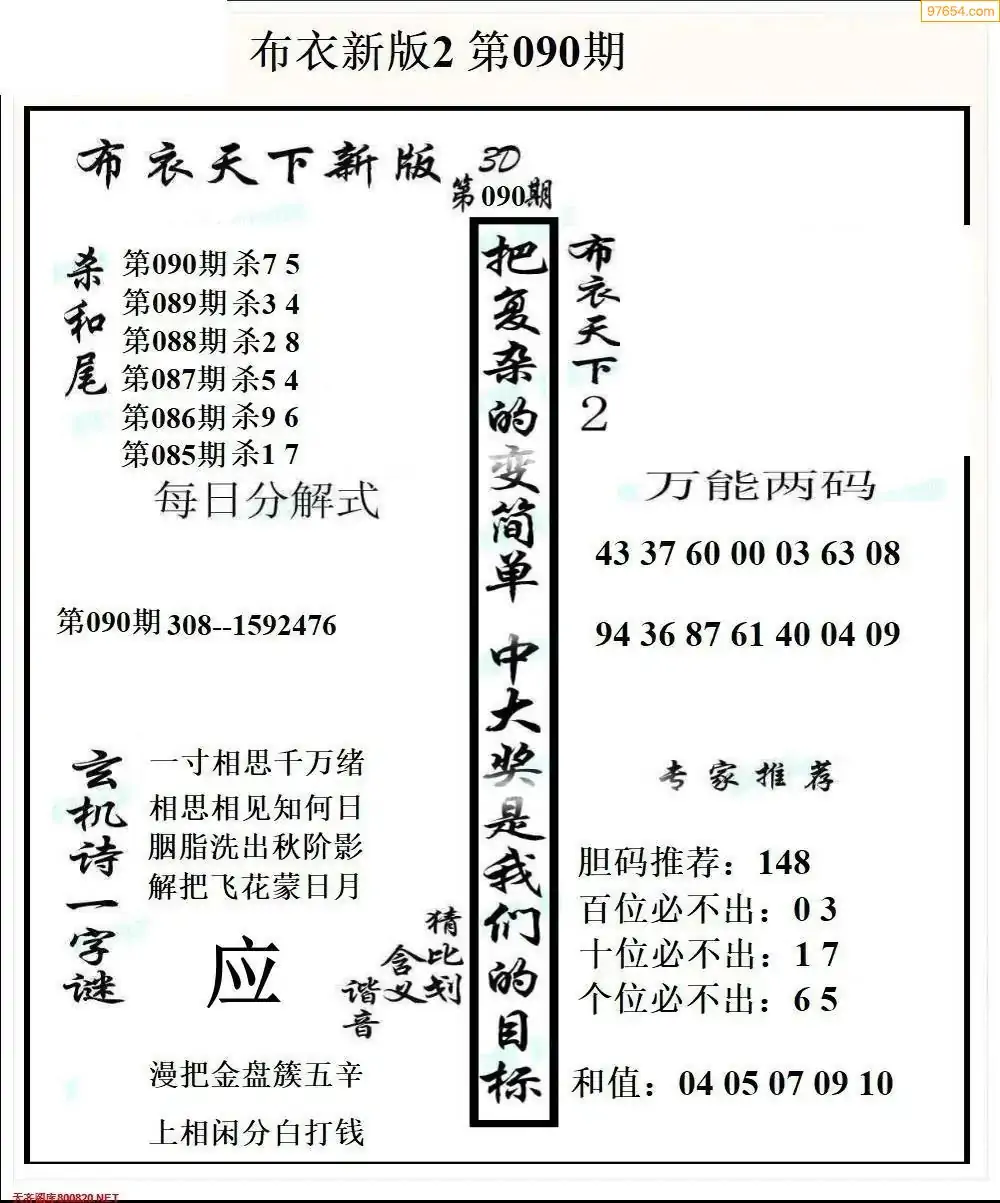 97654.com
布衣新版2 第090期
布衣天下新版 3D
第090期
杀和尾
第090期 杀7 5
第089期 杀3 4
第088期 杀2 8
第087期 杀5 4
第086期 杀9 6
第085期 杀1 7
每日分解式
第090期 308--1592476
玄机诗一字谜
一寸相思千万绪
相思相见知何日
胭脂洗出秋阶影
解把飞花蒙日月
应
猜比划
含义
谐音
漫把金盘簇五辛
上相闲分白打钱
把复杂的变简单 中大奖是我们的目标
布衣天下2
万能两码
43 37 60 00 03 63 08
94 36 87 61 40 04 09
专家推荐
胆码推荐：148
百位必不出：0 3
十位必不出：1 7
个位必不出：6 5
和值：04 05 07 09 10
天齐图库800820.NET